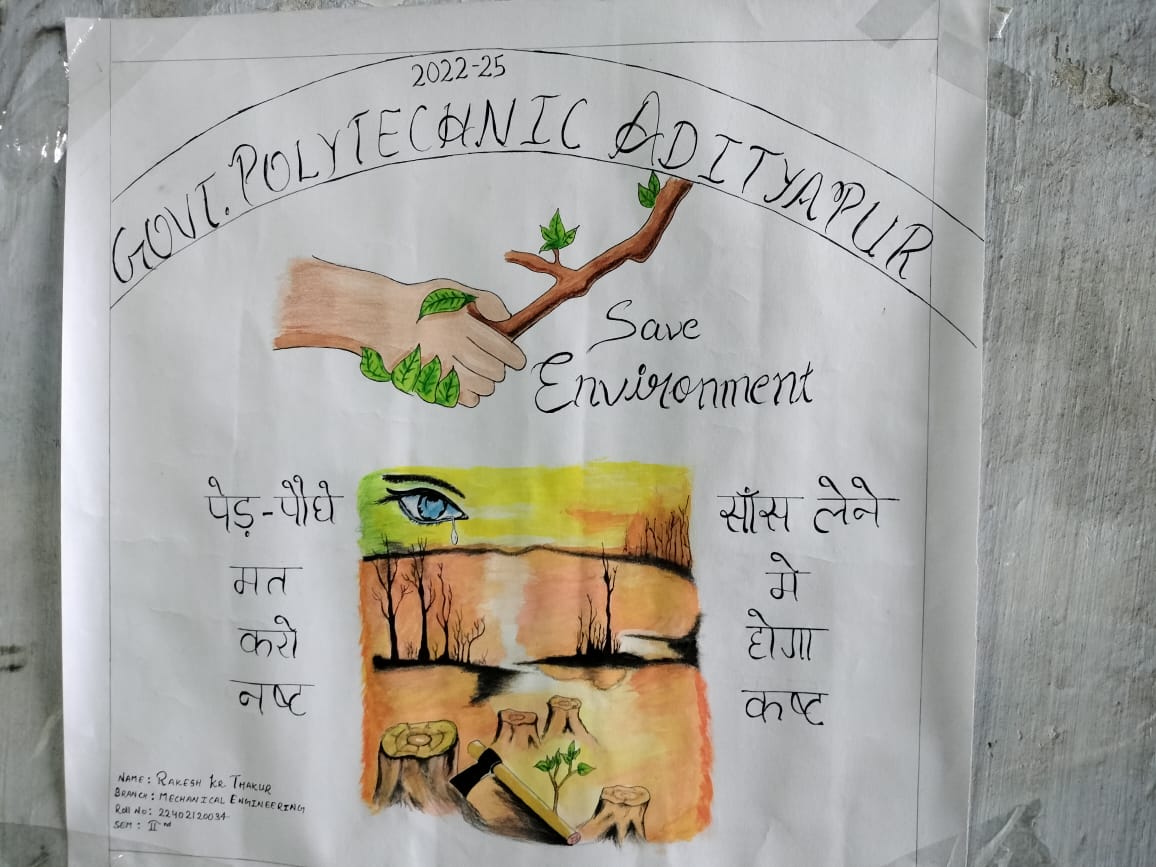 2022-25
GOVT. POLYTECHNIC ADITYAPUR
Save
Environment
पेड़-पौधे
मत
करो
नष्ट
साँस लेने
मे
होगा
कष्ट
NAME: RAKESH KR THAKUR
BRANCH: MECHANICAL ENGINEERING
Roll No: 22402120034
SEM: IInd